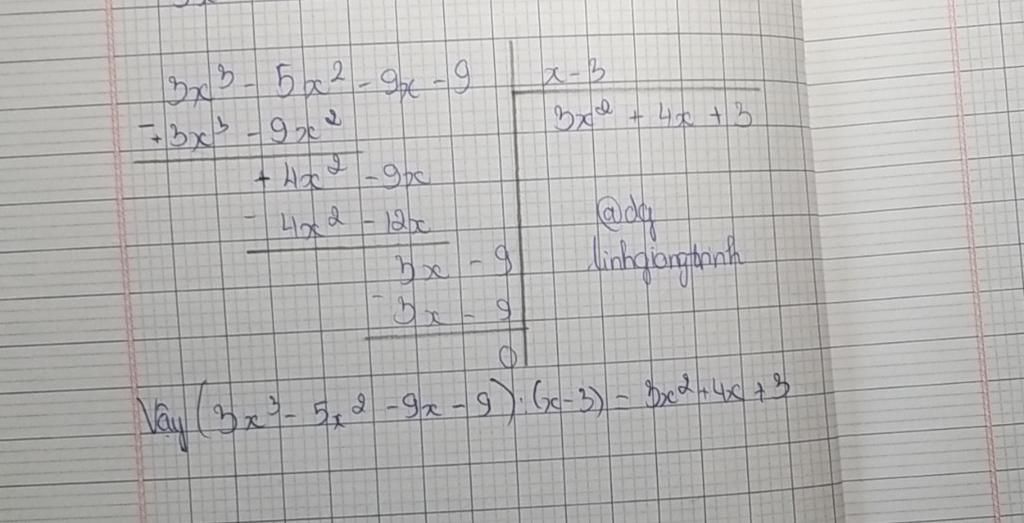 3x³ - 5x² - 9x - 9 | x - 3
- 3x³ - 9x² | 3x² + 4x + 3
+ 4x² - 9x
- 4x² - 12x
3x - 9
- 3x - 9
0
@dg
linhgiangtrinh
Vậy (3x³ - 5x² - 9x - 9) : (x - 3) = 3x² + 4x + 3